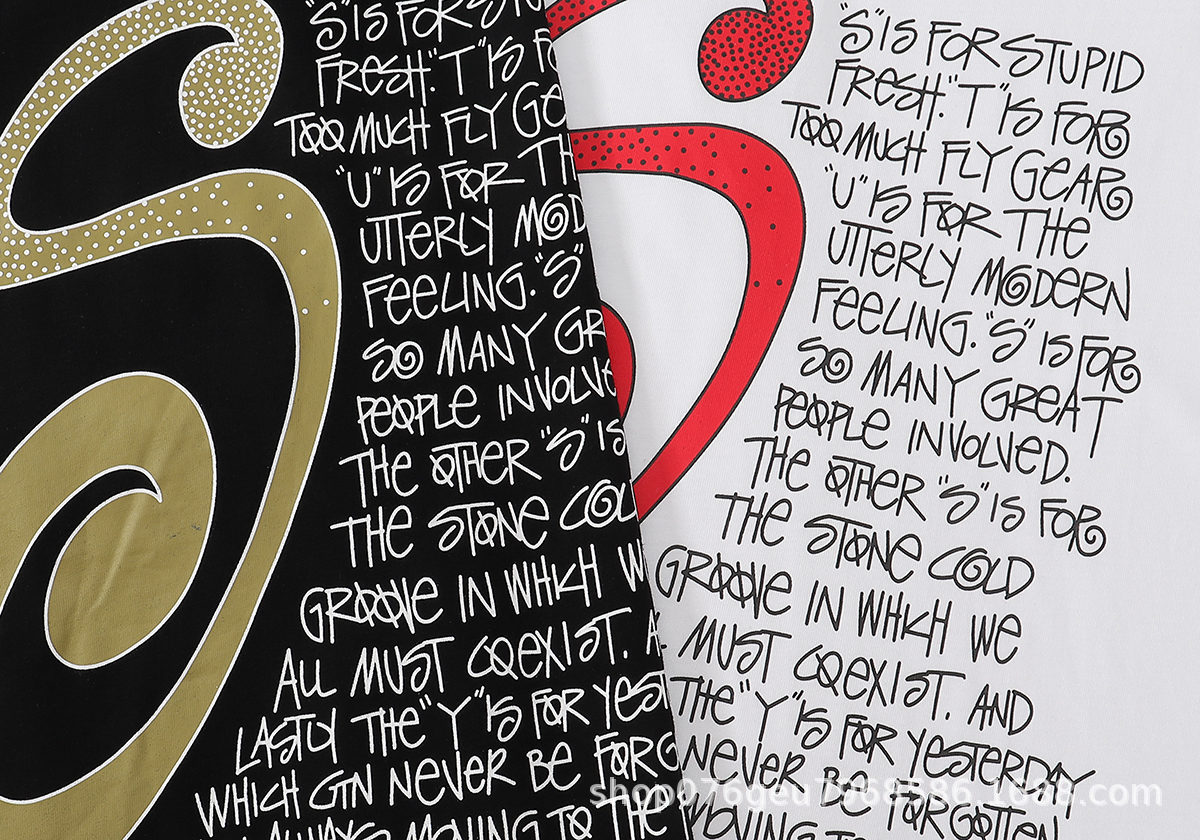 "S" IS FOR STUP
FRESH. "T" IS F
TOO MUCH FLY GE
"U" IS FOR TH
UTTERLY MOD
FEELING. "S"
SO MANY GR
PEOPLE INVOLVE
THE OTHER "S" IS
THE STONE COL
GROOVE IN WHICH W
ALL MUST COEXIST. A
LASTLY THE "Y" IS FOR YEST
WHICH CAN NEVER BE FORG
ALWAYS MOVING TO THE
"S" IS FOR STUPID
FRESH. "T" IS FOR
TOO MUCH FLY GEAR
"U" IS FOR THE
UTTERLY MODERN
FEELING. "S" IS FOR
SO MANY GREAT
PEOPLE INVOLVED.
THE OTHER "S" IS FOR
THE STONE COLD
GROOVE IN WHICH WE
MUST COEXIST. AND
THE "Y" IS FOR YESTERDAY
NEVER BE FORGOTTEN
MOVING TO
shop076geu7968586.1688.com